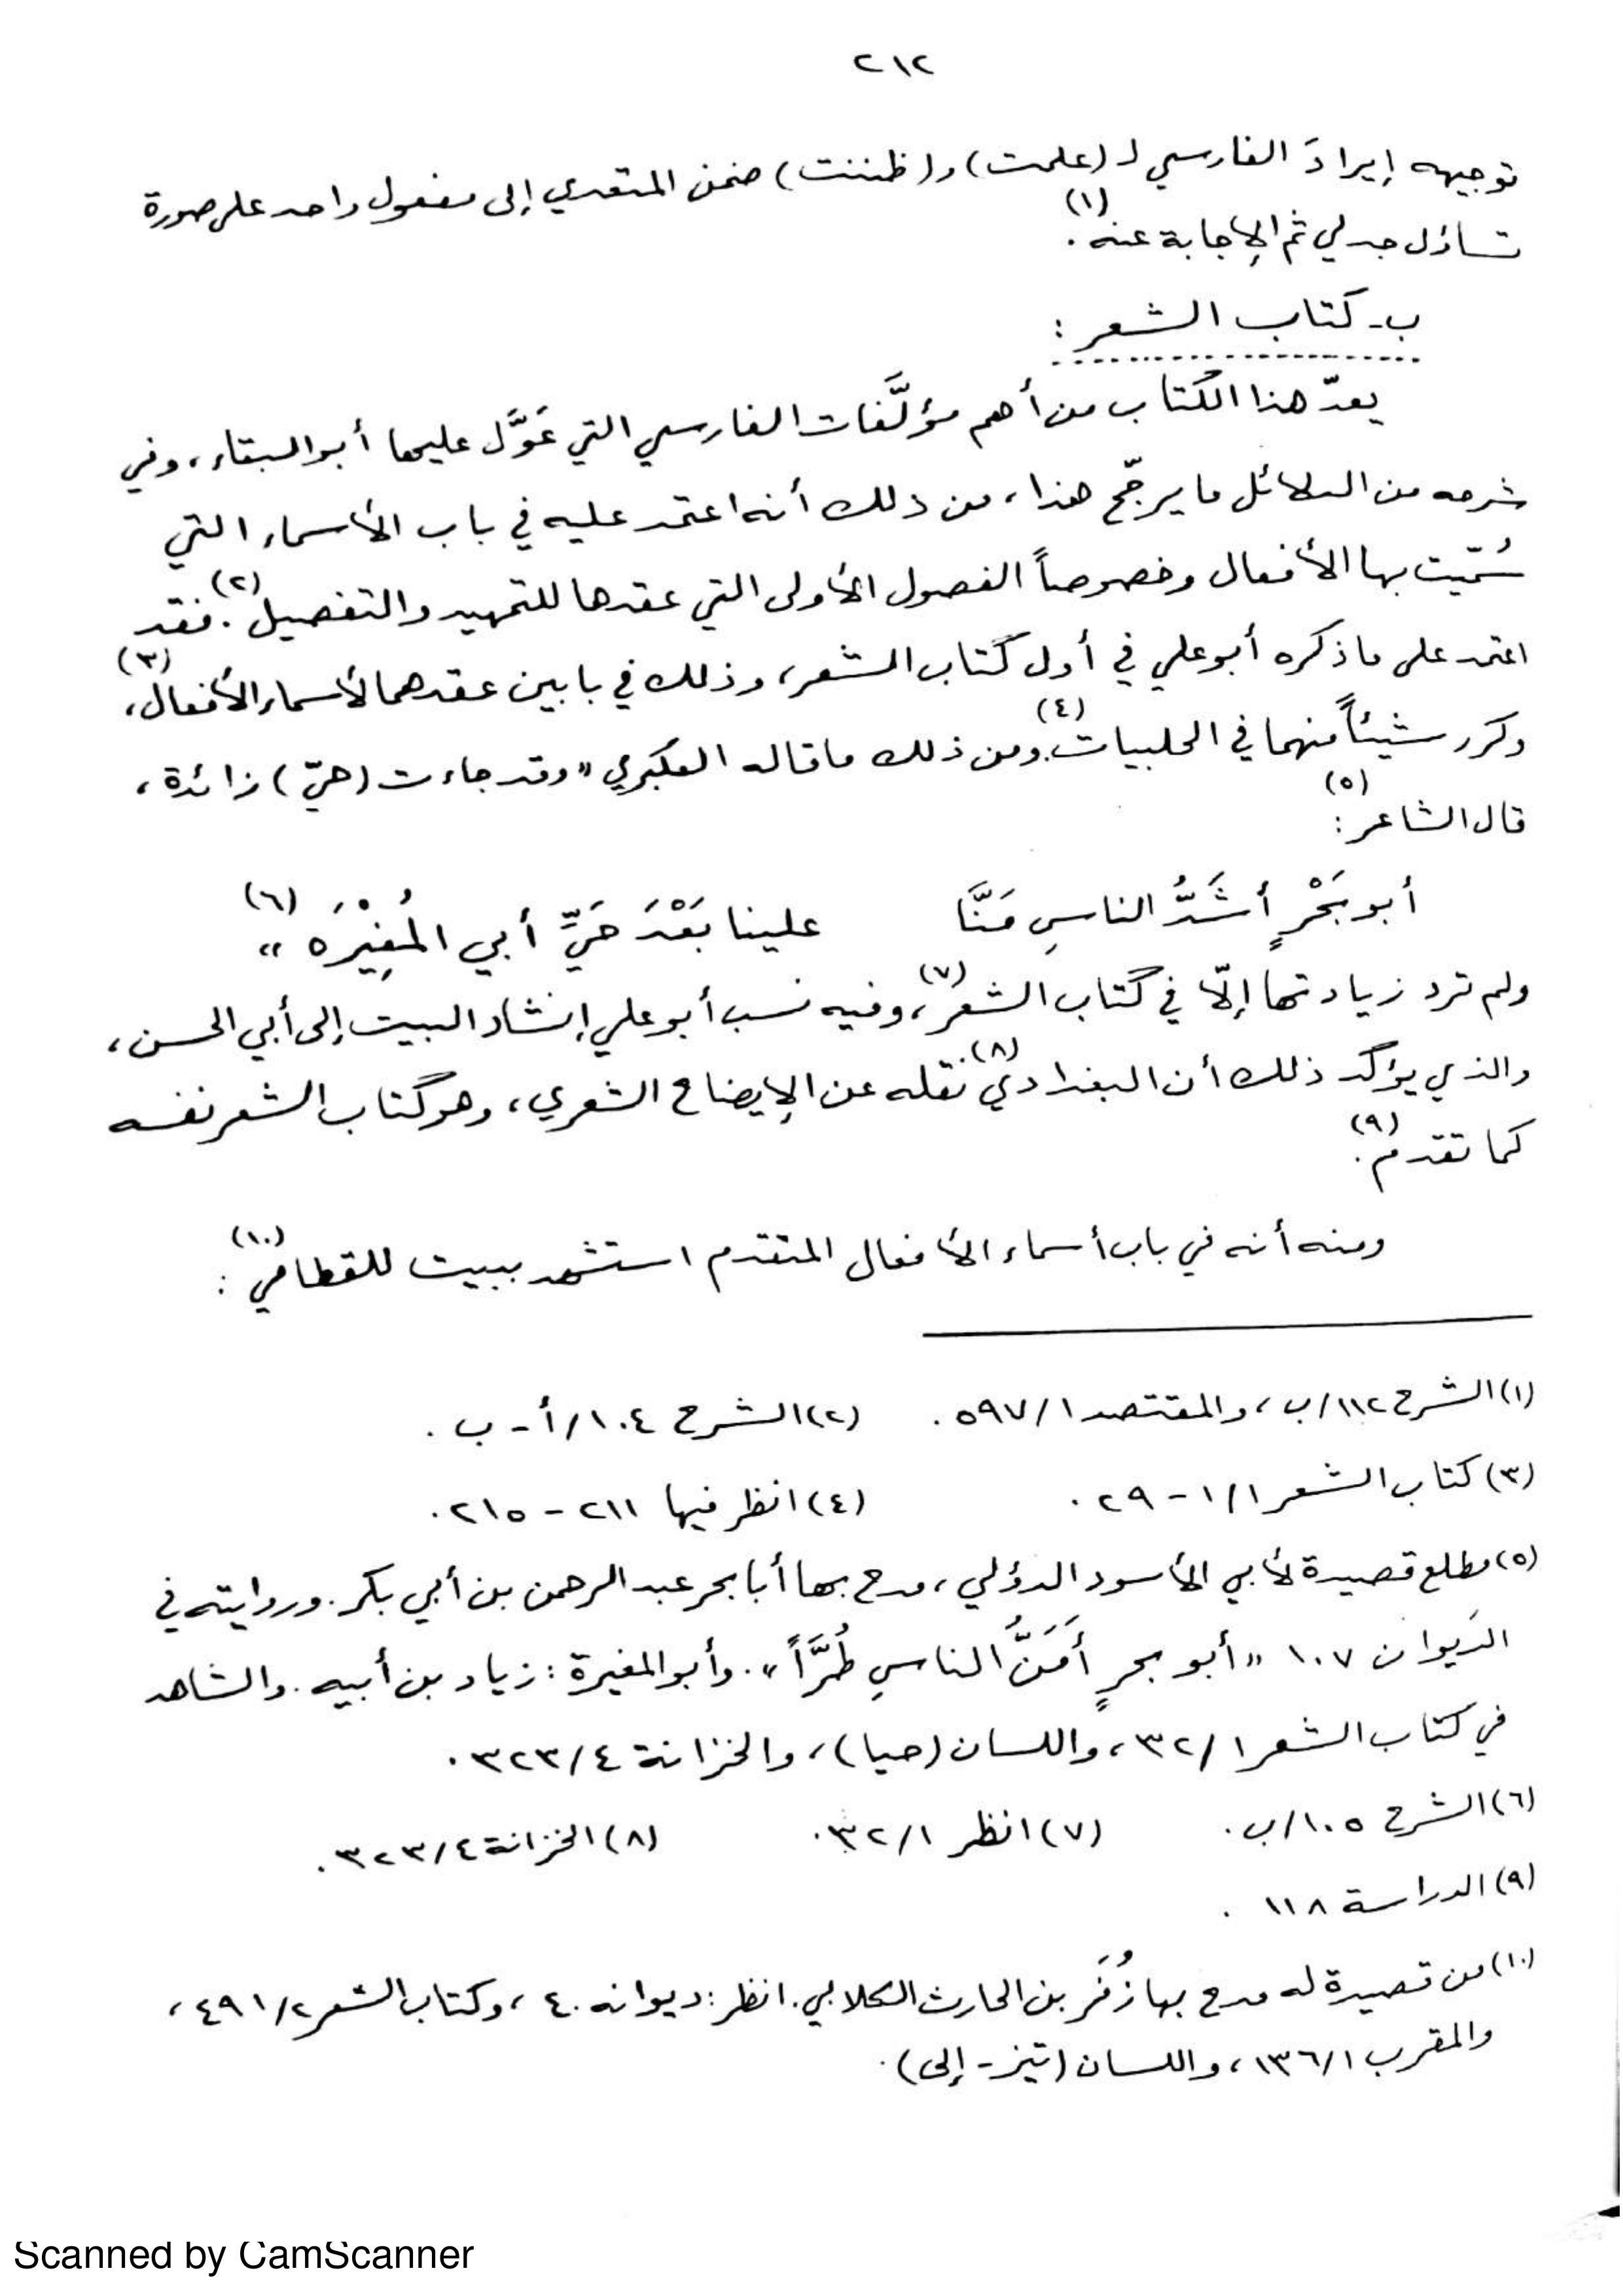 ٢١٢
توجيهه إيرادَ الفارسي لـ (علمت) و(ظننت) ضمن المتعدي إلى مفعول واحد على صورة
تساؤل جدلي ثم الإجابة عنه(١).
ب- كتاب الشعر :
يعدّ هذا الكتاب من أهم مؤلَّفات الفارسي التي عَوَّل عليها أبو البقاء، وفي
شرحه من الدلائل ما يرجّح هذا، من ذلك أنه اعتمد عليه في باب الأسماء التي
سُمّيت بها الأفعال وخصوصاً الفصول الأولى التي عقدها للتمهيد والتفصيل(٢). فقد
اعتمد على ما ذكره أبو علي في أول كتاب الشعر، وذلك في بابين عقدهما لأسماء الأفعال(٣)،
وكرر شيئاً منهما في الحلبيات(٤). ومن ذلك ما قاله العكبري «وقد جاءت (حيّ) زائدة،
قال الشاعر(٥):
أبو بَحْرٍ أشَدُّ الناسِ مَنَّا علينا بَعْدَ حَيِّ أبي المُغِيْرَه »(٦)
ولم ترد زيادتها إلّا في كتاب الشعر(٧)، وفيه نسب أبو علي إنشاد البيت إلى أبي الحسن،
والذي يؤكد ذلك أن البغدادي(٨) نقله عن الإيضاح الشعري، وهو كتاب الشعر نفسه
كما تقدم(٩).
ومنه أنه في باب أسماء الأفعال المتقدم استشهد ببيت للقطامي(١٠) :
(١) الشرح ١١٢/ب، والمقتصد ١/٥٩٧. (٢) الشرح ١٠٤/أ - ب .
(٣) كتاب الشعر ١/١ - ٢٩ . (٤) انظر فيها ٢١١ - ٢١٥.
(٥) مطلع قصيدة لأبي الأسود الدؤلي، مدح بها أبا بحر عبد الرحمن بن أبي بكر. وروايته في
الديوان ١٠٧ «أبو بحرٍ أَمَنُّ الناسِ طُرَّاً». وأبو المغيرة : زياد بن أبيه. والشاهد
في كتاب الشعر ١/٣٢، واللسان (حيا)، والخزانة ٤/٣٢٣.
(٦) الشرح ١٠٥/ب. (٧) انظر ١/٣٢. (٨) الخزانة ٤/٣٢٣.
(٩) الدراسة ١١٨ .
(١٠) من قصيدة له مدح بها زُفَر بن الحارث الكلابي. انظر: ديوانه ٤٠، وكتاب الشعر ٢/٤٩١،
والمقرب ١/١٣٦، واللسان (تيز - إلى).
Scanned by CamScanner